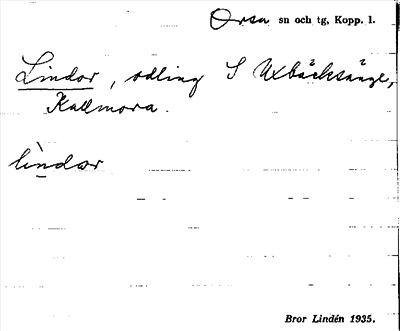 Orsa sn och tg, Kopp. l.
Lindor, odling S Uxbäcksänge,
Kallmora.
lìndær
Bror Lindén 1935.